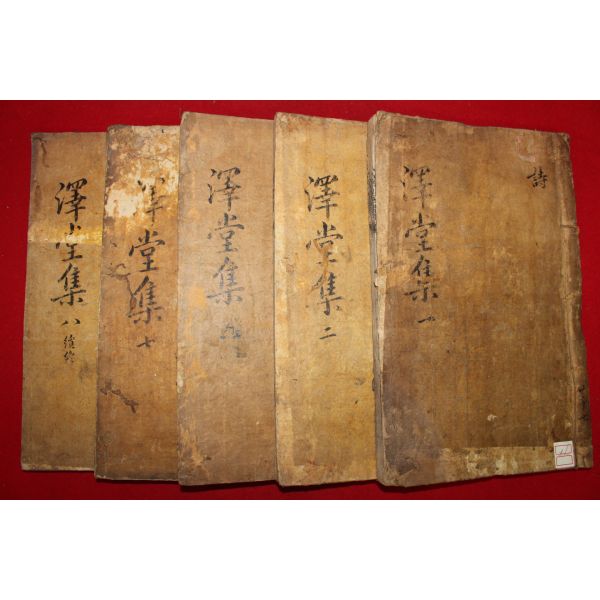 詩
澤堂集一
澤堂集二
澤堂集
澤堂集七
澤堂集八
續終